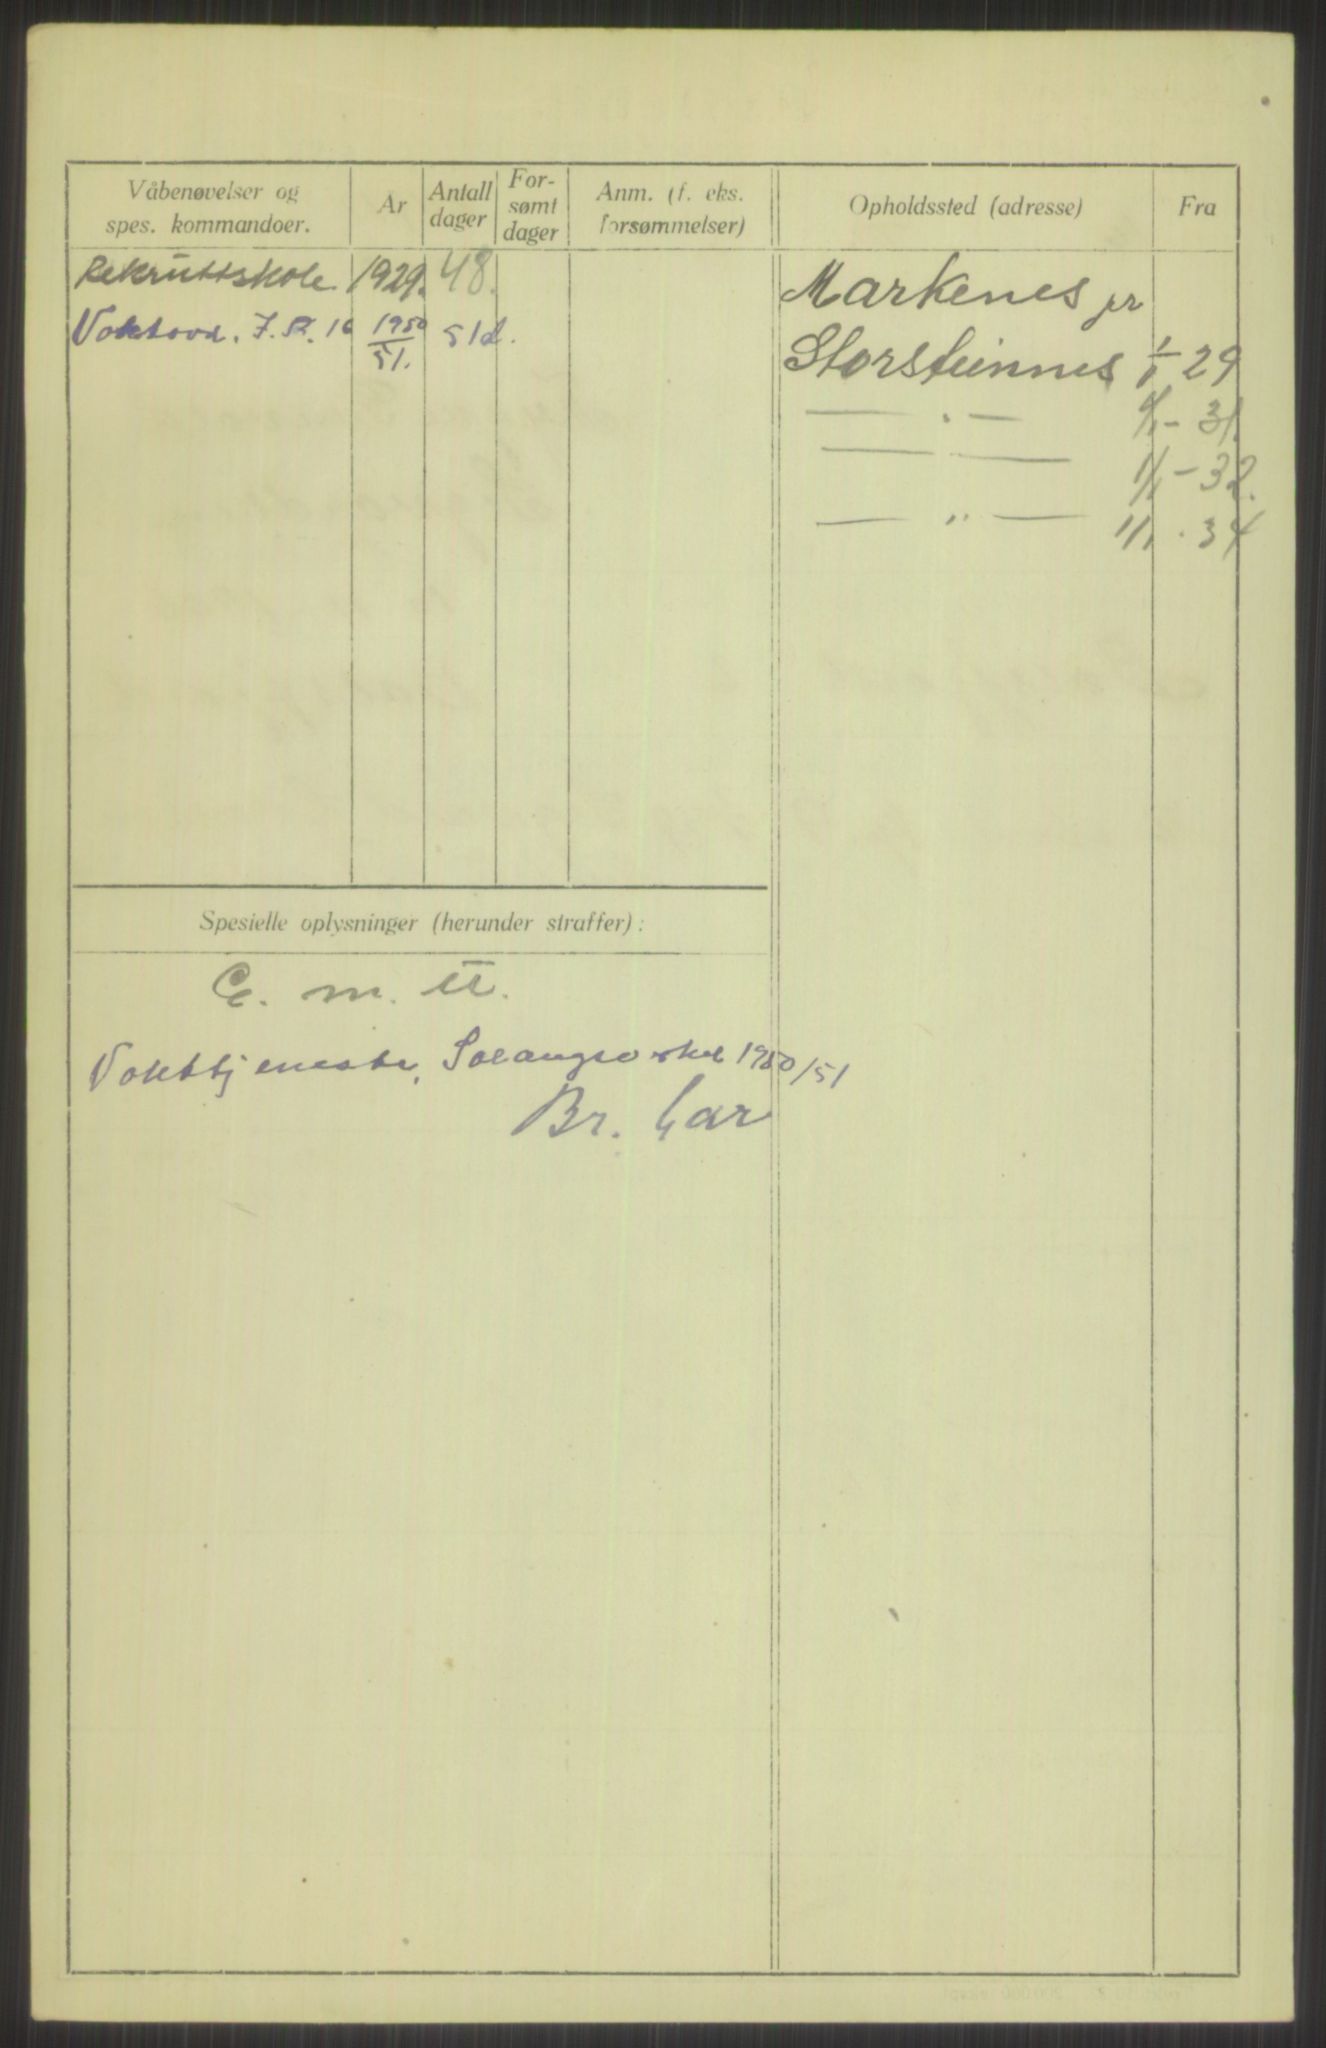 Våbenøvelser og spes. kommandoer.
År
Antall dager
Forsømt dager
Anm. (f. eks. forsømmelser)
Opholdssted (adresse)
Fra
Rekruttskole. 1929. 48.
Vaktavd. I.R. 16 1950/51. 51d.
Markenes pr
Storsteinnes 1/1 29
— " — 1/1 - 31.
— — 1/1 - 32.
— " — 1/1 - 34
Spesielle oplysninger (herunder straffer):
C. m. II.
Vakttjeneste, 1950/51
Br. Gar